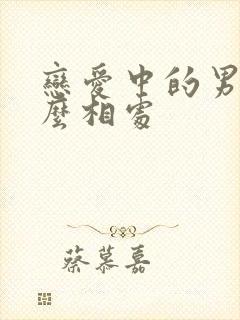 戀愛中的男
麼相處
蔡慕嘉